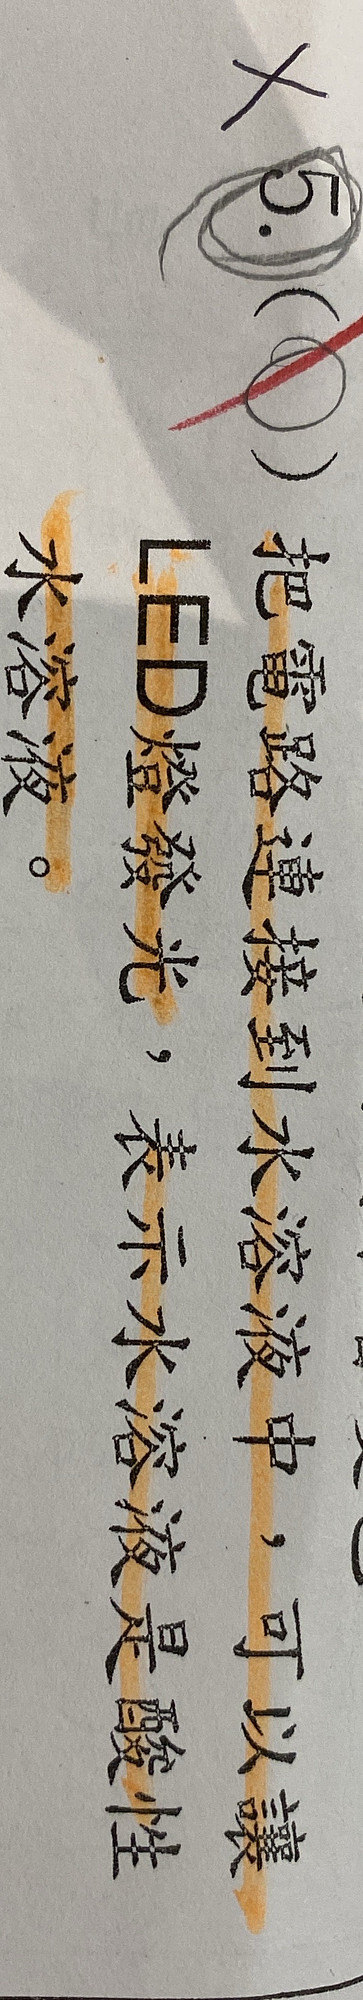 ×5.(○)把電路連接到水溶液中，可以讓
LED燈發光，表示水溶液是酸性
水溶液。